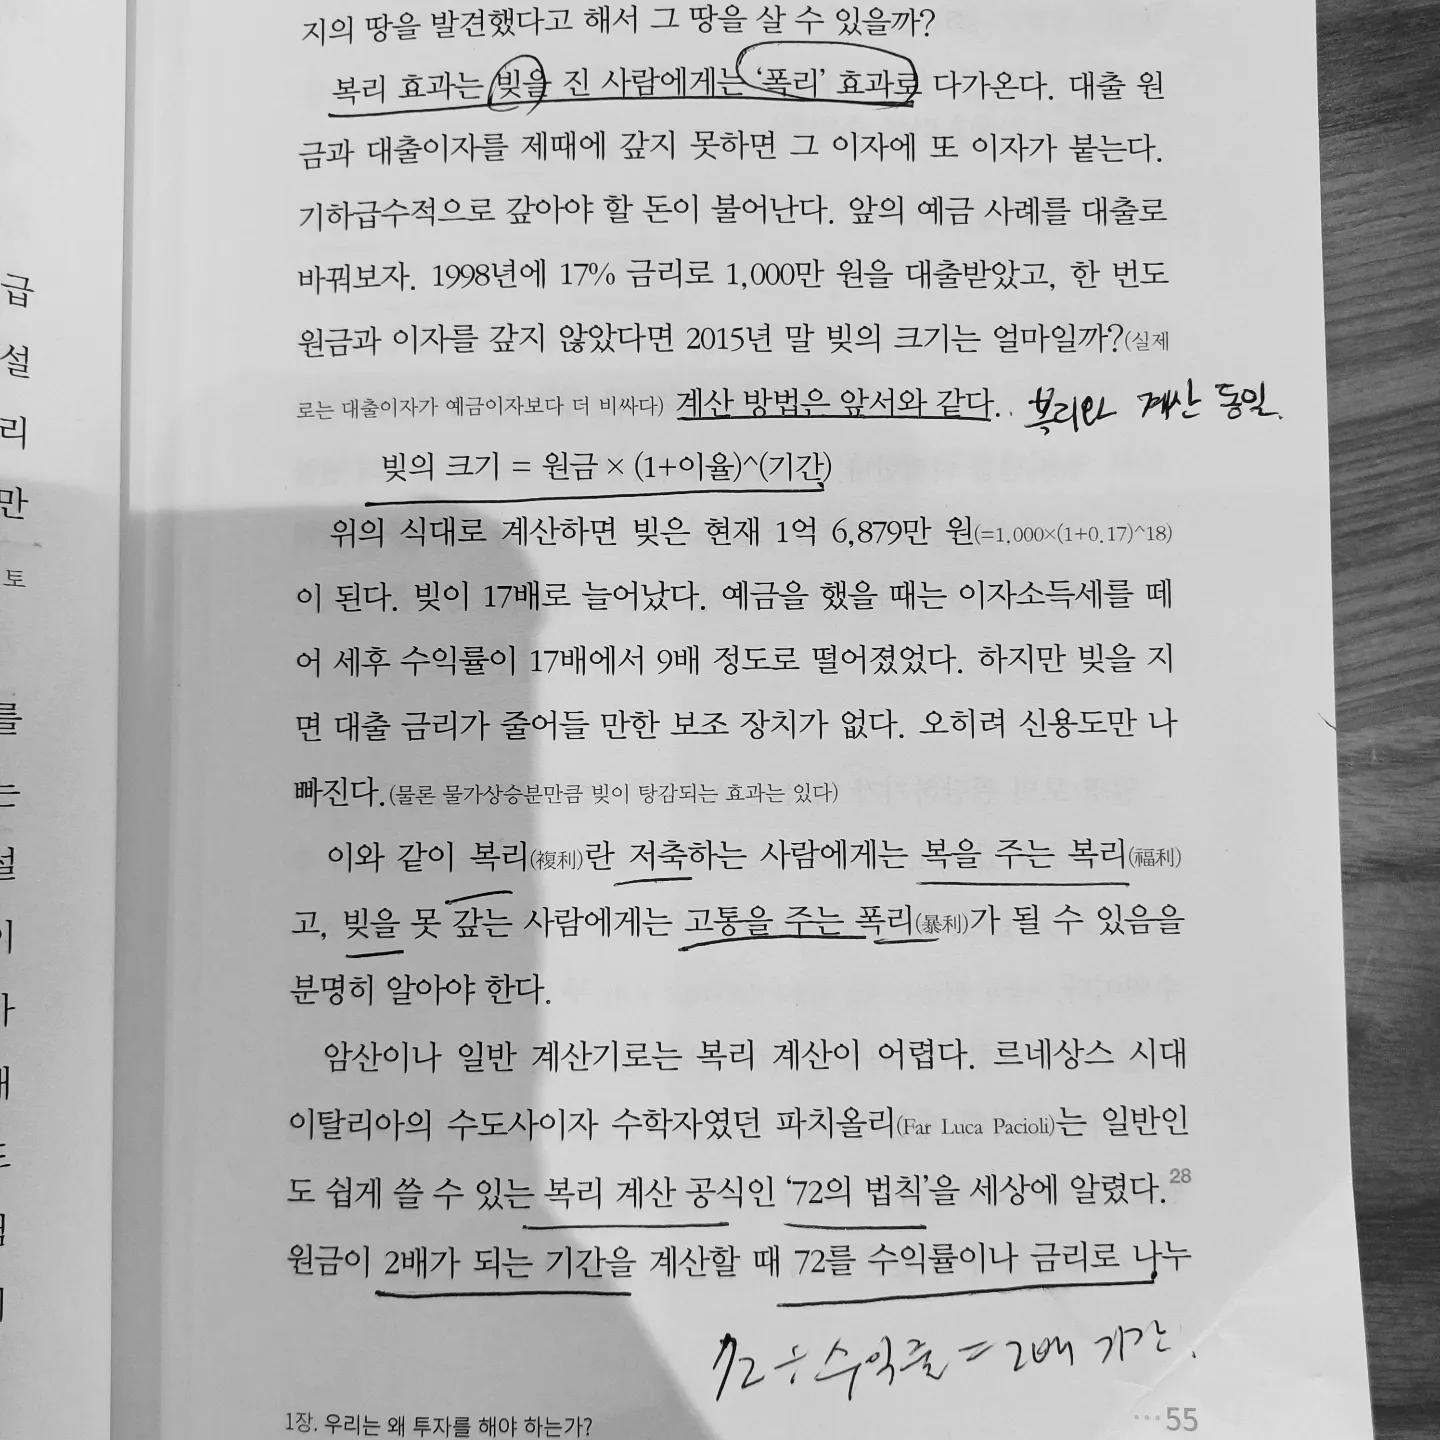 지의 땅을 발견했다고 해서 그 땅을 살 수 있을까?
복리 효과는 빚을 진 사람에게는 '폭리' 효과로 다가온다. 대출 원
금과 대출이자를 제때에 갚지 못하면 그 이자에 또 이자가 붙는다.
기하급수적으로 갚아야 할 돈이 불어난다. 앞의 예금 사례를 대출로
바꿔보자. 1998년에 17% 금리로 1,000만 원을 대출받았고, 한 번도
원금과 이자를 갚지 않았다면 2015년 말 빚의 크기는 얼마일까?(실제
로는 대출이자가 예금이자보다 더 비싸다) 계산 방법은 앞서와 같다. 복리와 계산 동일.
빚의 크기 = 원금 × (1+이율)^(기간)
위의 식대로 계산하면 빚은 현재 1억 6,879만 원(=1,000×(1+0.17)^18)
이 된다. 빚이 17배로 늘어났다. 예금을 했을 때는 이자소득세를 떼
어 세후 수익률이 17배에서 9배 정도로 떨어졌었다. 하지만 빚을 지
면 대출 금리가 줄어들 만한 보조 장치가 없다. 오히려 신용도만 나
빠진다.(물론 물가상승분만큼 빚이 탕감되는 효과는 있다)
이와 같이 복리(複利)란 저축하는 사람에게는 복을 주는 복리(福利)
고, 빚을 못 갚는 사람에게는 고통을 주는 폭리(暴利)가 될 수 있음을
분명히 알아야 한다.
암산이나 일반 계산기로는 복리 계산이 어렵다. 르네상스 시대
이탈리아의 수도사이자 수학자였던 파치올리(Far Luca Pacioli)는 일반인
도 쉽게 쓸 수 있는 복리 계산 공식인 '72의 법칙'을 세상에 알렸다.28
원금이 2배가 되는 기간을 계산할 때 72를 수익률이나 금리로 나누
72÷수익률 = 2배 기간.
1장. 우리는 왜 투자를 해야 하는가?
···55
급
설
리
만
토
를
는
설